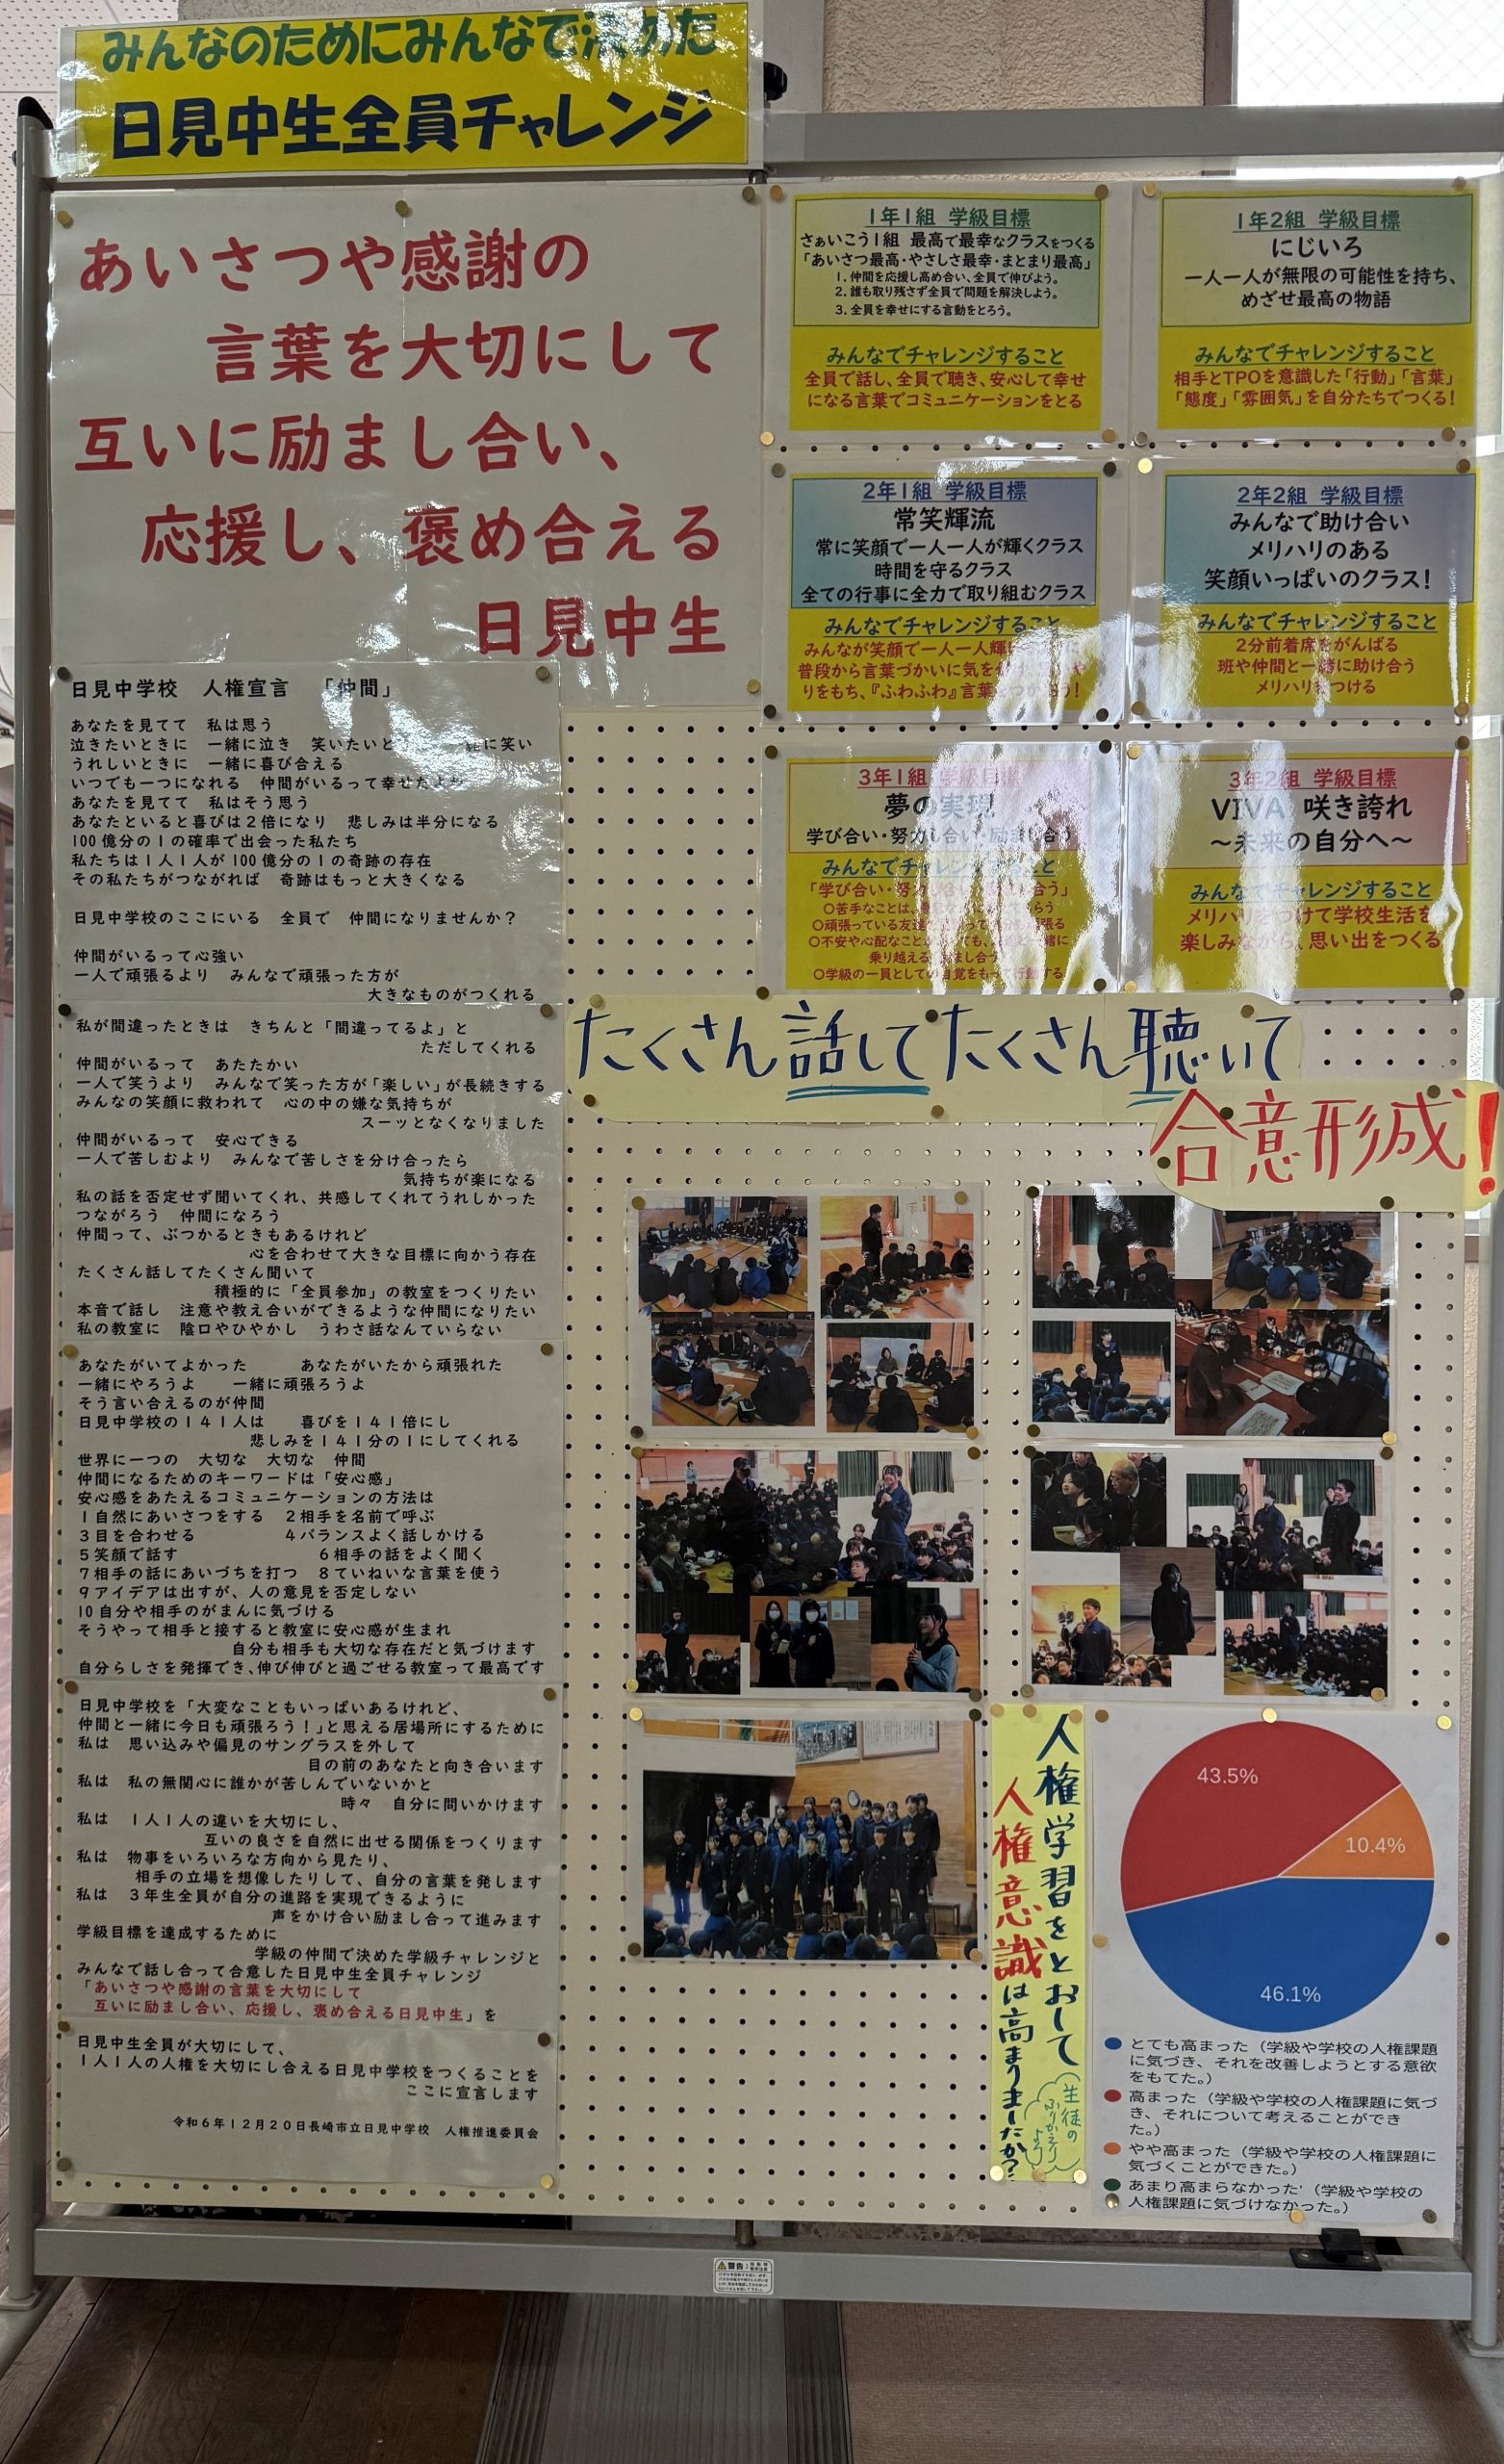 みんなのためにみんなで決めた
日見中生全員チャレンジ
あいさつや感謝の
言葉を大切にして
互いに励まし合い、
応援し、褒め合える
日見中生
日見中学校 人権宣言 「仲間」
あなたを見てて 私は思う
泣きたいときに 一緒に泣き 笑いたいと に笑い
うれしいときに 一緒に喜び合える
いつでも一つになれる 仲間がいるって幸せだよね
あなたを見てて 私はそう思う
あなたといると喜びは２倍になり 悲しみは半分になる
100億分の1の確率で出会った私たち
私たちは1人1人が100億分の1の奇跡の存在
その私たちがつながれば 奇跡はもっと大きくなる
日見中学校のここにいる 全員で 仲間になりませんか？
仲間がいるって心強い
一人で頑張るより みんなで頑張った方が
大きなものがつくれる
私が間違ったときは きちんと「間違ってるよ」と
ただしてくれる
仲間がいるって あたたかい
一人で笑うより みんなで笑った方が「楽しい」が長続きする
みんなの笑顔に救われて 心の中の嫌な気持ちが
スーッとなくなりました
仲間がいるって 安心できる
一人で苦しむより みんなで苦しさを分け合ったら
気持ちが楽になる
私の話を否定せず聞いてくれ、共感してくれてうれしかった
つながろう 仲間になろう
仲間って、ぶつかるときもあるけれど
心を合わせて大きな目標に向かう存在
たくさん話してたくさん聞いて
積極的に「全員参加」の教室をつくりたい
本音で話し 注意や教え合いができるような仲間になりたい
私の教室に 陰口やひやかし うわさ話なんていらない
あなたがいてよかった あなたがいたから頑張れた
一緒にやろうよ 一緒に頑張ろうよ
そう言い合えるのが仲間
日見中学校の１４１人は 喜びを１４１倍にし
悲しみを１４１分の1にしてくれる
世界に一つの 大切な 大切な 仲間
仲間になるためのキーワードは「安心感」
安心感をあたえるコミュニケーションの方法は
1自然にあいさつをする 2相手を名前で呼ぶ
3目を合わせる 4バランスよく話しかける
5笑顔で話す 6相手の話をよく聞く
7相手の話にあいづちを打つ 8ていねいな言葉を使う
9アイデアは出すが、人の意見を否定しない
10自分や相手のがまんに気づける
そうやって相手と接すると教室に安心感が生まれ
自分も相手も大切な存在だと気づけます
自分らしさを発揮でき、伸び伸びと過ごせる教室って最高です
日見中学校を「大変なこともいっぱいあるけれど、
仲間と一緒に今日も頑張ろう！」と思える居場所にするために
私は 思い込みや偏見のサングラスを外して
目の前のあなたと向き合います
私は 私の無関心に誰かが苦しんでいないかと
時々 自分に問いかけます
私は 1人1人の違いを大切にし、
互いの良さを自然に出せる関係をつくります
私は 物事をいろいろな方向から見たり、
相手の立場を想像したりして、自分の言葉を発します
私は ３年生全員が自分の進路を実現できるように
声をかけ合い励まし合って進みます
学級目標を達成するために
学級の仲間で決めた学級チャレンジと
みんなで話し合って合意した日見中生全員チャレンジ
「あいさつや感謝の言葉を大切にして
互いに励まし合い、応援し、褒め合える日見中生」を
日見中生全員が大切にして、
1人1人の人権を大切にし合える日見中学校をつくることを
ここに宣言します
令和６年１２月２０日長崎市立日見中学校 人権推進委員会
1年1組 学級目標
さぁいこう1組 最高で最幸なクラスをつくる
「あいさつ最高・やさしさ最幸・まとまり最高」
1.仲間を応援し高め合い、全員で伸びよう。
2.誰も取り残さず全員で問題を解決しよう。
3.全員を幸せにする言動をとろう。
みんなでチャレンジすること
全員で話し、全員で聴き、安心して幸せ
になる言葉でコミュニケーションをとる
1年2組 学級目標
にじいろ
一人一人が無限の可能性を持ち、
めざせ最高の物語
みんなでチャレンジすること
相手とTPOを意識した「行動」「言葉」
「態度」「雰囲気」を自分たちでつくる！
2年1組 学級目標
常笑輝流
常に笑顔で一人一人が輝くクラス
時間を守るクラス
全ての行事に全力で取り組むクラス
みんなでチャレンジすること
みんなが笑顔で一人一人輝
普段から言葉づかいに気を や
りをもち、『ふわふわ』言葉 う！
2年2組 学級目標
みんなで助け合い
メリハリのある
笑顔いっぱいのクラス！
みんなでチャレンジすること
2分前着席をがんばる
班や仲間と一緒に助け合う
メリハリをつける
3年1組 学級目標
夢の実現
学び合い・努力し合い・励まし合う
みんなでチャレンジすること
「学び合い・努力し合い・ 合う」
〇苦手なことは、 らう
〇頑張っている友達 って 張る
〇不安や心配なこと ても、 一緒に
乗り越える まし合う
〇学級の一員としての自覚をもって行動する
3年2組 学級目標
VIVA 咲き誇れ
～未来の自分へ～
みんなでチャレンジすること
メリハリをつけて学校生活を
楽しみながら、思い出をつくる
たくさん話してたくさん聴いて
合意形成！
人権学習をとおして
人権意識は高まりましたか？
生徒の
ふりかえり
より
43.5%
10.4%
46.1%
とても高まった（学級や学校の人権課題
に気づき、それを改善しようとする意欲
をもてた。）
高まった（学級や学校の人権課題に気づ
き、それについて考えることができ
た。）
やや高まった（学級や学校の人権課題に
気づくことができた。）
あまり高まらなかった（学級や学校の
人権課題に気づけなかった。）
警告